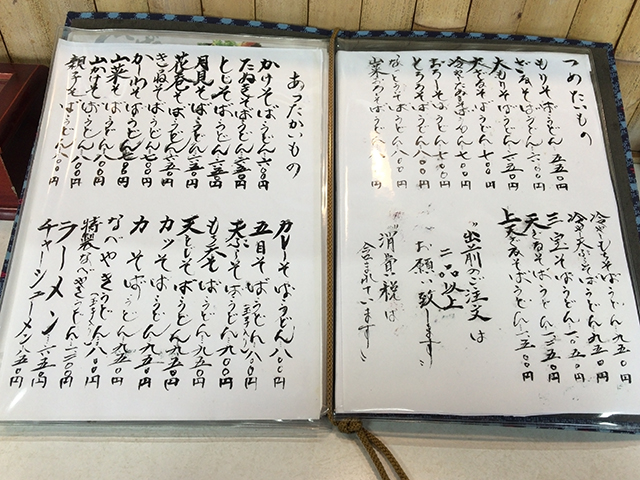 つめたいもの
もりそば・うどん 五五〇円
ざるそば・うどん 六〇〇円
大もりそば・うどん 六五〇円
大ざるそば・うどん 七〇〇円
冷やしたぬきそば・うどん 七〇〇円
おろしそば・うどん 七〇〇円
とろろそば・うどん 八〇〇円
なっとうそば・うどん 八〇〇円
冷やしもちそば・うどん 九五〇円
冷や天ぷらそば・うどん 九五〇円
三宝そば・うどん 一〇五〇円
天ざるそば・うどん 九五〇円
上天ざるそば・うどん 一二五〇円
出前のご注文は
二品以上
お願い致します
消費税は
含まれています
あったかいもの
かけそば・うどん 六〇〇円
たぬきそば・うどん 六五〇円
とじそば・うどん 六五〇円
月見そば・うどん 六五〇円
花巻そば・うどん 六五〇円
きつねそば・うどん 七〇〇円
かしわそば・うどん 七〇〇円
山菜そば・うどん 八〇〇円
山かけそば・うどん 八〇〇円
親子そば・うどん 八〇〇円
カレーそば・うどん 八〇〇円
五目そば・うどん 八〇〇円
天ぷらそば・うどん 九〇〇円
もち天そば・うどん 九五〇円
天とじそば・うどん 九五〇円
カツそば・うどん 九五〇円
力そば・うどん 九五〇円
なべやきうどん 九五〇円
特製なべやきうどん 一二〇〇円
ラーメン 六五〇円
チャーシューメン 八五〇円